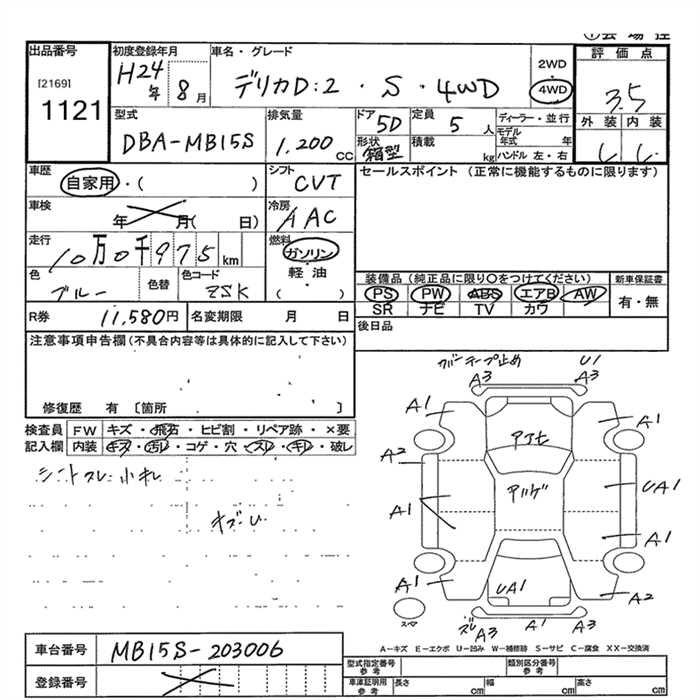 出品番号
[2169]
1121
初度登録年月
H24年 8月
車名・グレード
デリカD:2・S・4WD
2WD
4WD
評価点
3.5
外装 内装
型式
DBA-MB15S
排気量
1,200 CC
ドア
5D
形状
箱型
定員
5 人
積載
kg
ディーラー・並行
モデル年式 年
ハンドル 左・右
車歴
自家用・( )
シフト
CVT
セールスポイント (正常に機能するものに限ります)
車検
年 月( 日)
冷房
AAC
走行
10万0千975km
燃料
ガソリン
軽・油
( )
色
ブルー
色替
色コード
ZSK
装備品 (純正品に限り○をつけてください)
PS PW ABS エアB AW
SR ナビ TV カワ
新車保証書
有・無
R券
11,580円
名変期限 月 日
後日品
注意事項申告欄(不具合内容等は具体的に記入して下さい)
修復歴 有 〔箇所 〕
検査員記入欄
FW キズ・飛石・ヒビ割・リペア跡・×要
内装 キズ・汚レ・コゲ・穴・スレ・キレ・破レ
シートスレ 小キレ
キズU
カバーテープ止め
U1
A3 A3
A1 A1
A2 UA1
A1 A1
A1 A2
UA1
ズレ A3 A1 A3
スマ
A-キズ E-エクボ U-凹み W-補修跡 S-サビ C-腐食 XX-交換済
車台番号
MB15S-203006
登録番号
型式指定番号
参考
類別区分番号
参考
車庫証明用
参考
長さ cm 幅 cm 高さ cm